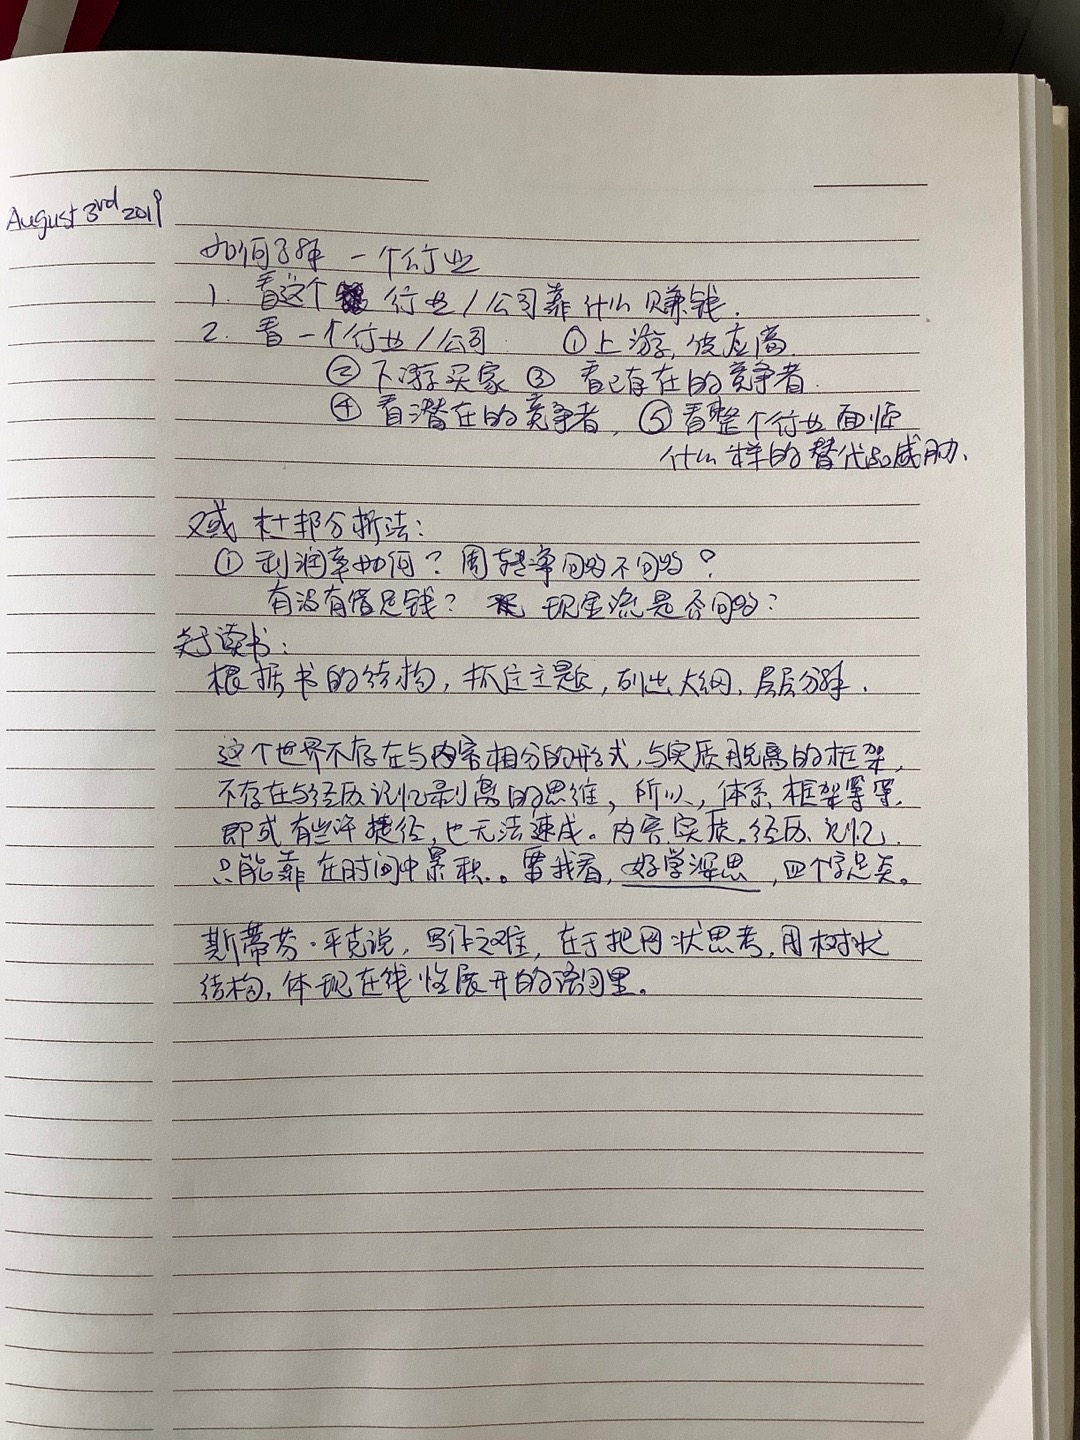 August 3rd 2019
如何了解一个行业
1. 看这个 行业/公司靠什么赚钱.
2. 看一个行业/公司 ①上游,供应商.
② 下游买家 ③ 看已存在的竞争者.
④ 看潜在的竞争者, ⑤看整个行业面临
什么样的替代品威胁、
又或 杜邦分析法:
① 利润率如何? 周转率同的不同的?
有没有借足钱? 现金流是否同的?
关于读书:
根据书的结构, 抓住主题, 列出大纲, 层层分解.
这个世界不存在与内容相分的形式,与实质脱离的框架,
不存在与经历记忆剥离的思维, 所以, 体系、框架等等,
即或有些许捷径,也无法速成。内容、实质、经历、记忆,
只能靠在时间中累积。要我看, 好学深思, 四个字足矣。
斯蒂芬·平克说, 写作之难, 在于把网状思考,用树状
结构, 体现在线性展开的语句里。